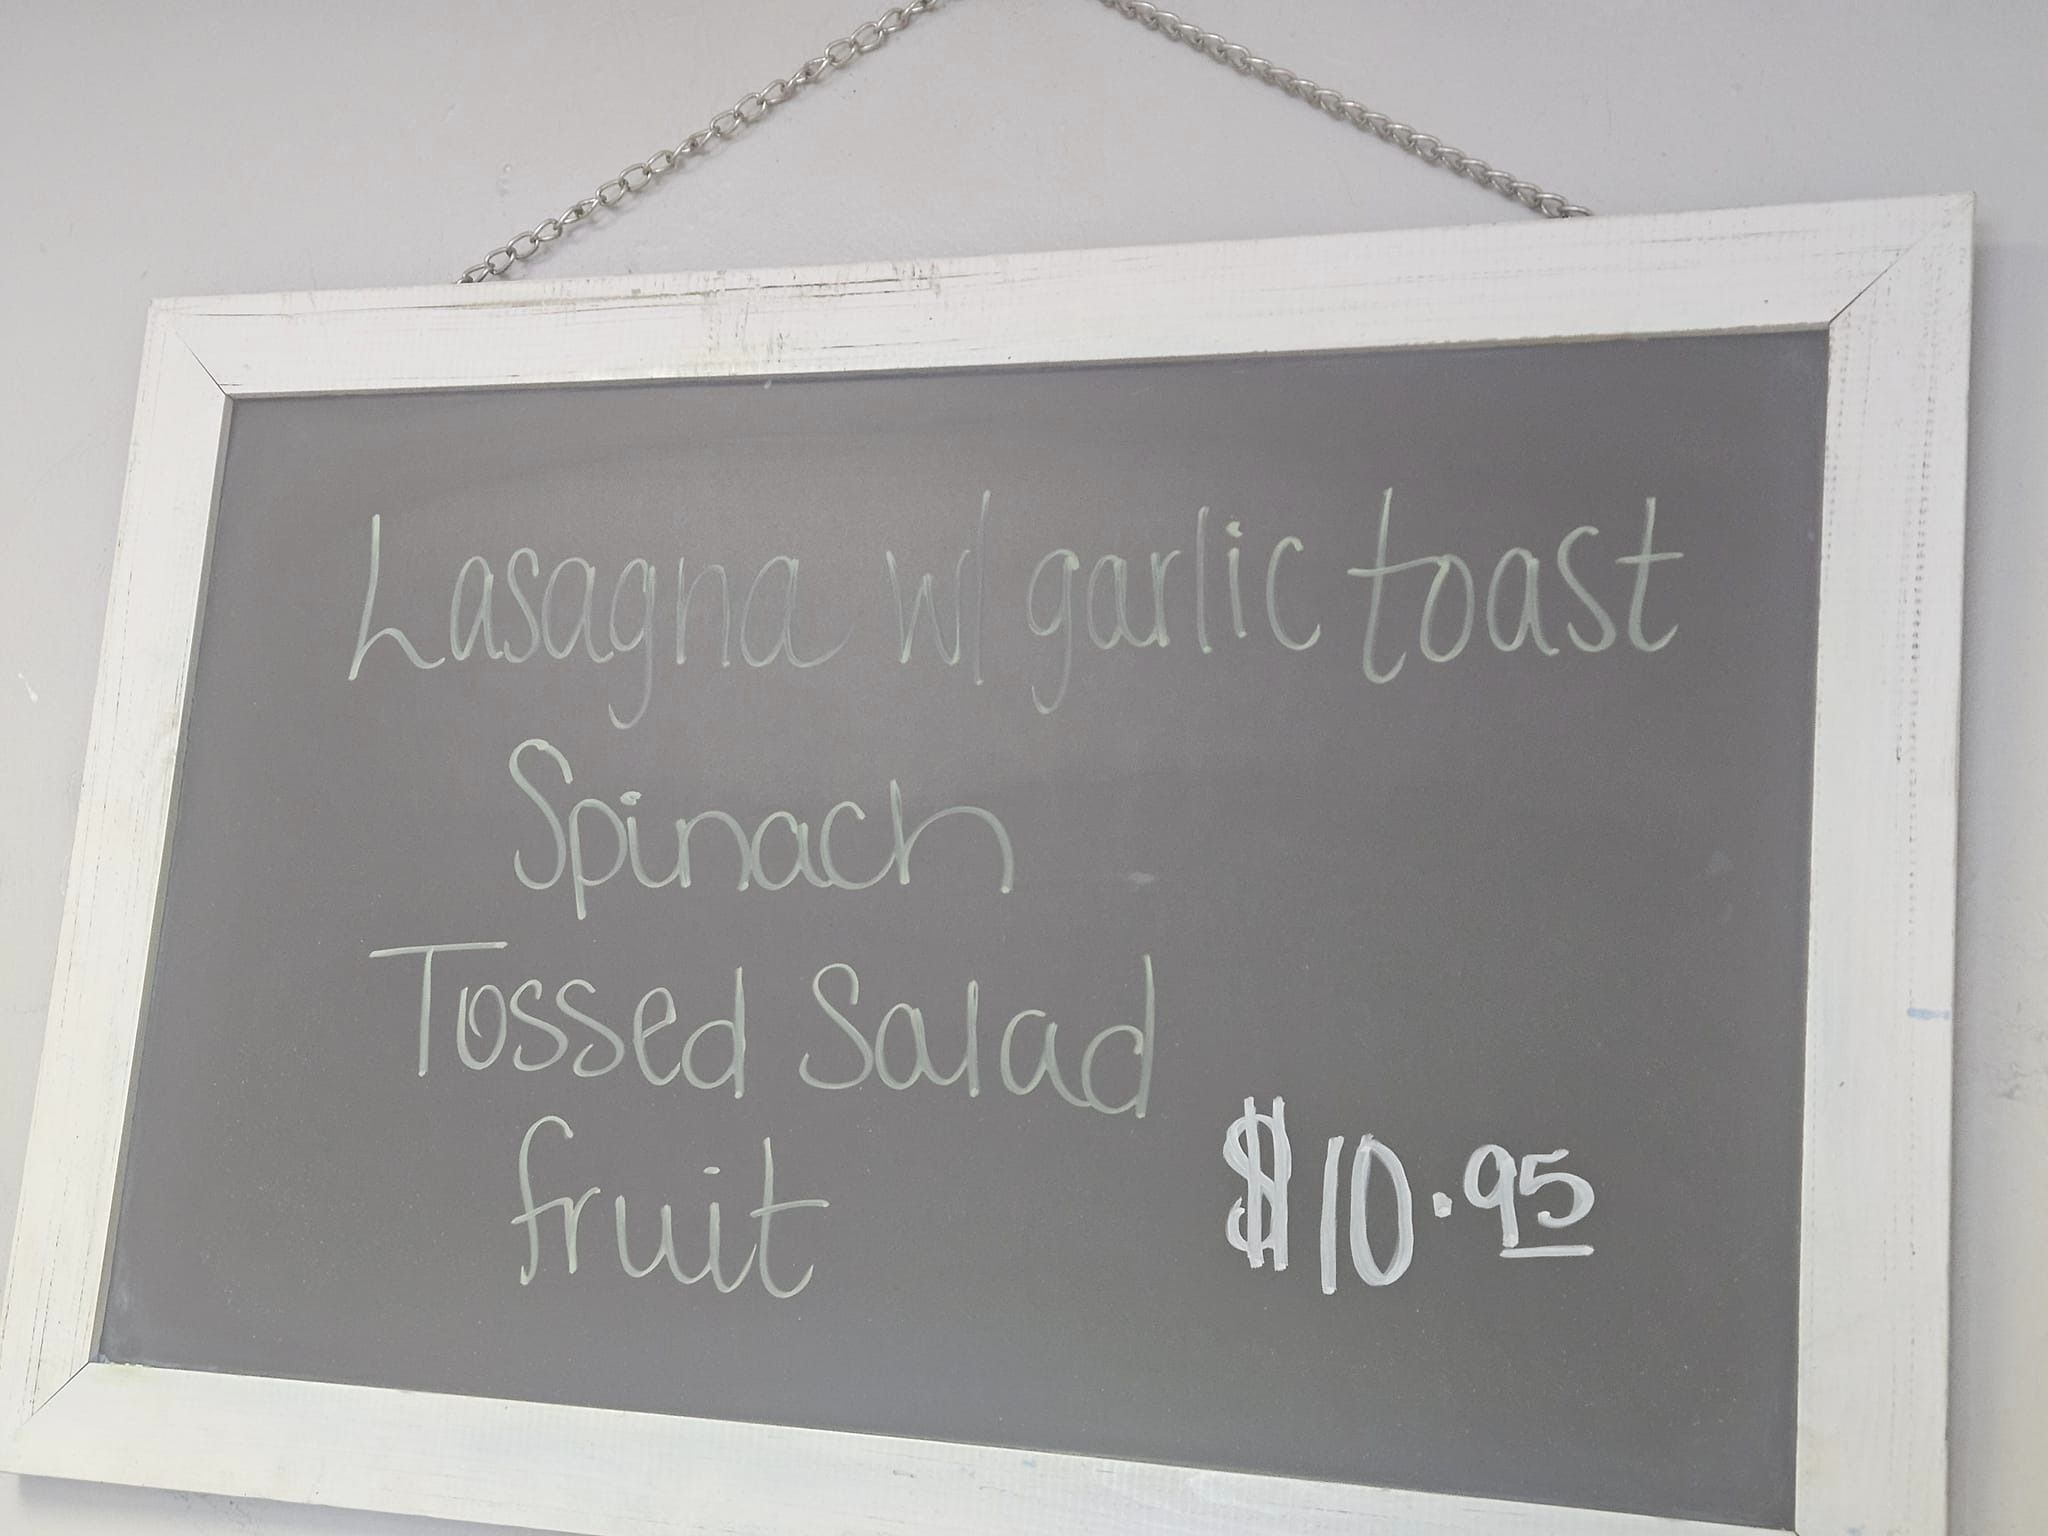 Lasagna w/ garlic toast
Spinach
Tossed Salad
fruit
$10.95